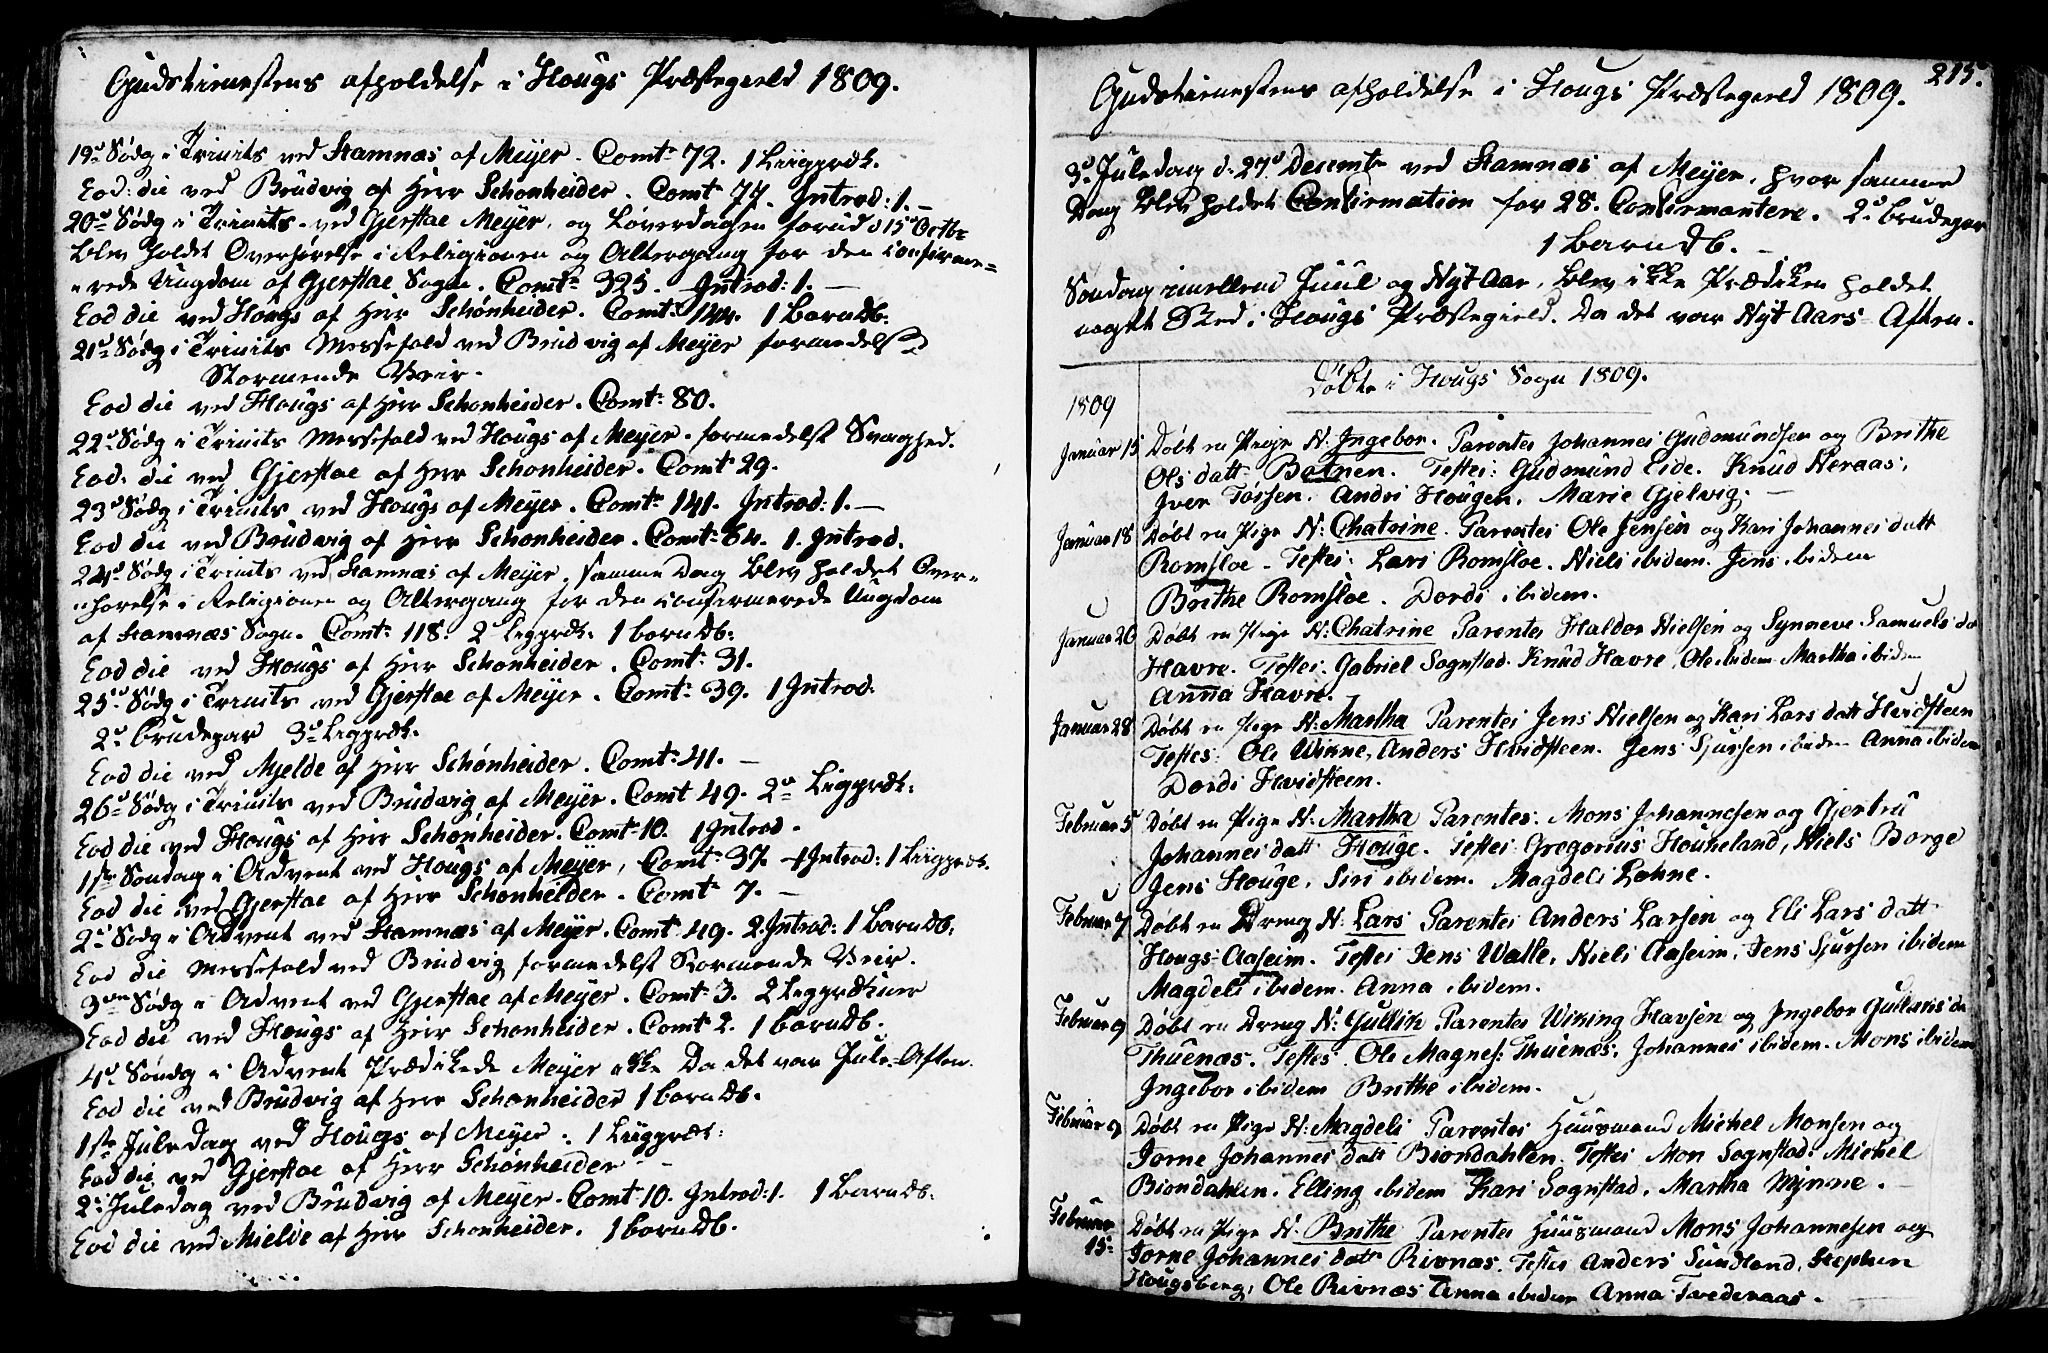 Gudstienestens afholdelse i Hougs Præstegield 1809.
19de Sødg i Trinits ved Stamnæs af Meyer. Comt: 72. 1 Liigpræk.
Eod: die ved Brudvig af Herr Schønheider. Comt 77. Introd: 1. —
20de Sødg i Trinits. ved Gjerstae Meyer, og Loverdagen forud d 15de Octb:
blev holdet Overhørelse i Religionen og Altergang for den confirme=
=rede Ungdom af Gjerstae Sogn. Comt: 325. Introd: 1. —
Eod die ved Hougs af Herr Schønheider. Comt: 144. 1 Barndb:
21de Sødg i Trinits Messefald ved Brudvig af Meyer formedelst
Stormende Veir.
Eod die ved Hougs af Herr Schønheider. Comt: 80.
22de Sødg i Trinits Messefald ved Hougs af Meyer. formedelst Svaghed.
Eod. die ved Gjerstae af Herr Schønheider. Comt 29.
23de Sødg i Trinits ved Hougs af Meyer. Comt: 141. Introd: 1. —
Eod die ved Brudwig af Herr Schønheider. Comt: 64. 1. Introd.
24de Sødg i Trinits ved Stamnæs af Meyer, samme Dag blev holdet Over=
=horelse i Religionen og Altergang for den confirmerede Ungdom
af Stamnæs Sogn. Comt: 118. 2de Ligpræk. 1 barndb:
Eod die ved Hougs af Herr Schønheider. Comt: 31.
25de Sødg i Trinits ved Gjerstae af Meyer. Comt: 39. 1 Introd.
2de Brudepar 3de Ligpræk.
Eod die ved Mjelde af Herr Schønheider. Comt: 41. —
26de Sødg i Trinits ved Brudvig af Meyer. Comt 49. 2de Ligpræk:
Eod die ved Hougs af Herr Schønheider. Comt: 10. 1 Introd.
1ste Søndag i Advent ved Hougs af Meyer, Comt: 37. 1 Introd: 1 Liigpræk.
Eod die ved Gjerstae af Herr Schønheider. Comt: 7. —
2de Sødg i Advent ved Stamnæs af Meyer. Comt 49. 2. Introd: 1 Barndb:
Eod die Messefald ved Brudvig formedelst Stormende Veir.
3die Sødg i Advent ved Gjerstae af Meyer. Comt: 3. 2 Ligprækner
Eod die ved Hougs af Herr Schønheider. Comt 2. 1 barndb.
4de Søndg i Advent Prædikede Meyer ikke Da det var Jule-Aften.
Eod die ved Brudvig af Herr Schønheider 1 barndb.
1ste Juledag ved Hougs af Meyer. 1 Liigpræk:
Eod die ved Gjerstae af Herr Schønheider —
2de Juledag ved Brudvig af Meyer. Comt 10. Introd: 1. 1 Barndb:
Eod die ved Mielde af Herr Schønheider. 1 barndb.
215.
Gudstienestens afholdelse i Hougs Præstegield 1809.
3de Juledag d: 27de Decembr ved Stamnæs af Meyer, hvor samme
Dag blev holdet Confirmation for 28. Confirmantere. 2de brudepar
1 barndb. —
Søndag imellem Juul og Nyt Aar, blev ikke Prædiken holdet
noget Sted i Hougs Præstegield. Da det var Nyt Aars- Aften.
Døbte i Hougs Sogn 1809.
1809
Januar 15 Døbt en Pige N: Ingebor. Parentes Johannes Gudmundsen og Brithe
Ols datt Botnen. Testes: Gudmund Eide. Knud Neraas,
Iver Tøssen. Andri Hougen. Marie Gjelvig. —
Januar 18 Døbt en Pige N: Chatrine. Parentes Ole Jensen og Kari Johannes datt
Romsloe. Testes: Lars Romsloe. Niels ibidem. Jens ibidem
Brithe Romsloe. Dordi ibidem.
Januar 20 Døbt en Pige N: Chatrine Parentes Haldor Nielsen og Synneve Samuels dt
Havre. Testes: Gabriel Sognstad. Knud Havre, Ole ibidem Martha ibidem
Anna Havre.
Januar 28 Døbt en Pige N: Martha Parentes Jens Nielsen og Kari Lars datt Hvidsteen
Testes: Ole Winne, Anders Hvidsteen. Jens Sjursen ibidem Anna ibidem
Dordi Hvidsteen.
Februar 5 Døbt en Pige N: Martha Parentes: Mons Johannesen og Gjertru
Johannes datt Houge. Testes Gregorius Houkeland, Niels Borge
Jens Houge, Siri ibidem. Magdeli Løhne.
Februar 7 Døbt en Dreng N: Lars Parentes Anders Larsen og Eli Lars datt
Hougs-Aaseim. Testes Jens Walle, Niels Aaseim, Jens Sjursen ibidem
Magdeli ibidem. Anna ibidem.
Februar 9 Døbt en Dreng N: Gullik Parentes Wiking Havsen og Ingebor Gulliks dt
Thuenæs. Testes. Ole Magnes: Thuenæs, Johannes ibidem. Mons ibidem
Ingebor ibidem Brithe ibidem.
Februar 9 Døbt en Pige N: Magdeli Parentes Huusmand Michel Monsen og
Jorne Johannes datt Biondahlen. Testes Mon Sognstad. Michel
Biondahlen. Elling ibidem Kari Sognstad. Martha Wynne.
Februar 15. Døbt en Pige N. Brithe Parentes Huusmand Mons Johannesen og
Jorne Johannes datt Rivnæs. Testes Anders Sundland, Stephen
Hougsberg, Ole Rivnæs Anna ibidem Anna Tvederaas.